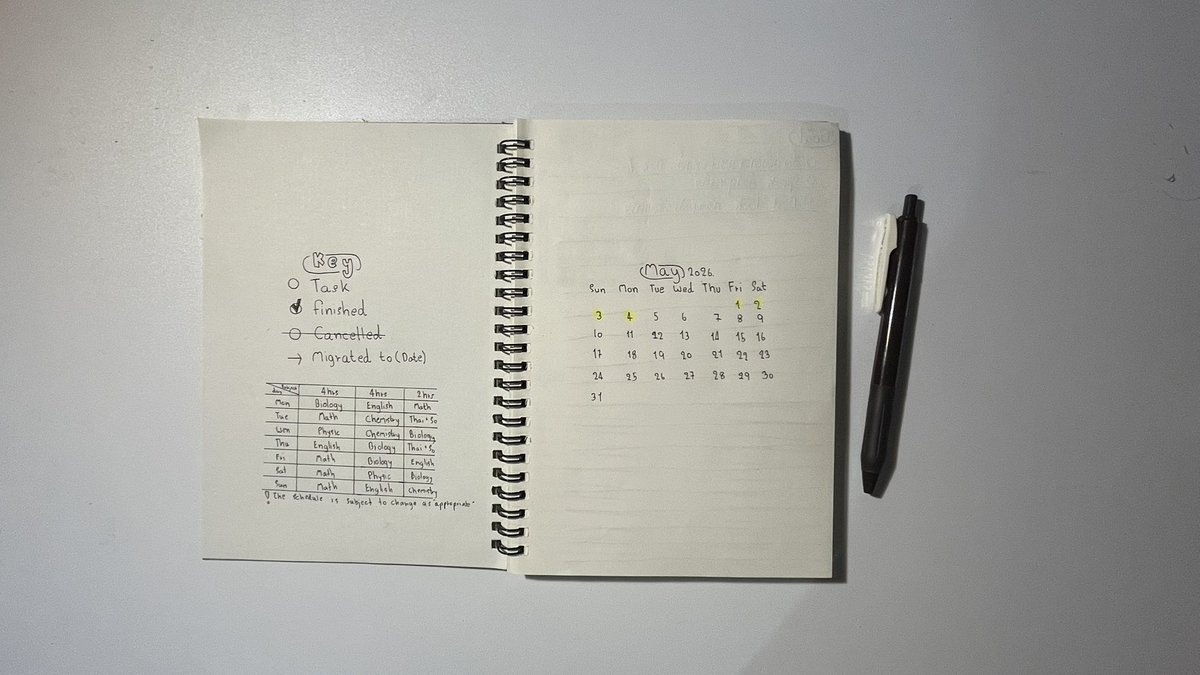 Key
Task
finished
Cancelled
Migrated to (Date)
day 4 hrs 4 hrs 2 hrs
Mon Biology English Math
Tue Math Chemistry Thai + So
Wen Physic Chemistry Biology
Thu English Biology Thai + So
Fri Math Biology English
Sat Math Physic Biology
Sun Math English Chemistry
The schedule is subject to change as appropriate
May 2026.
Sun Mon Tue Wed Thu Fri Sat
1 2
3 4 5 6 7 8 9
10 11 12 13 14 15 16
17 18 19 20 21 22 23
24 25 26 27 28 29 30
31